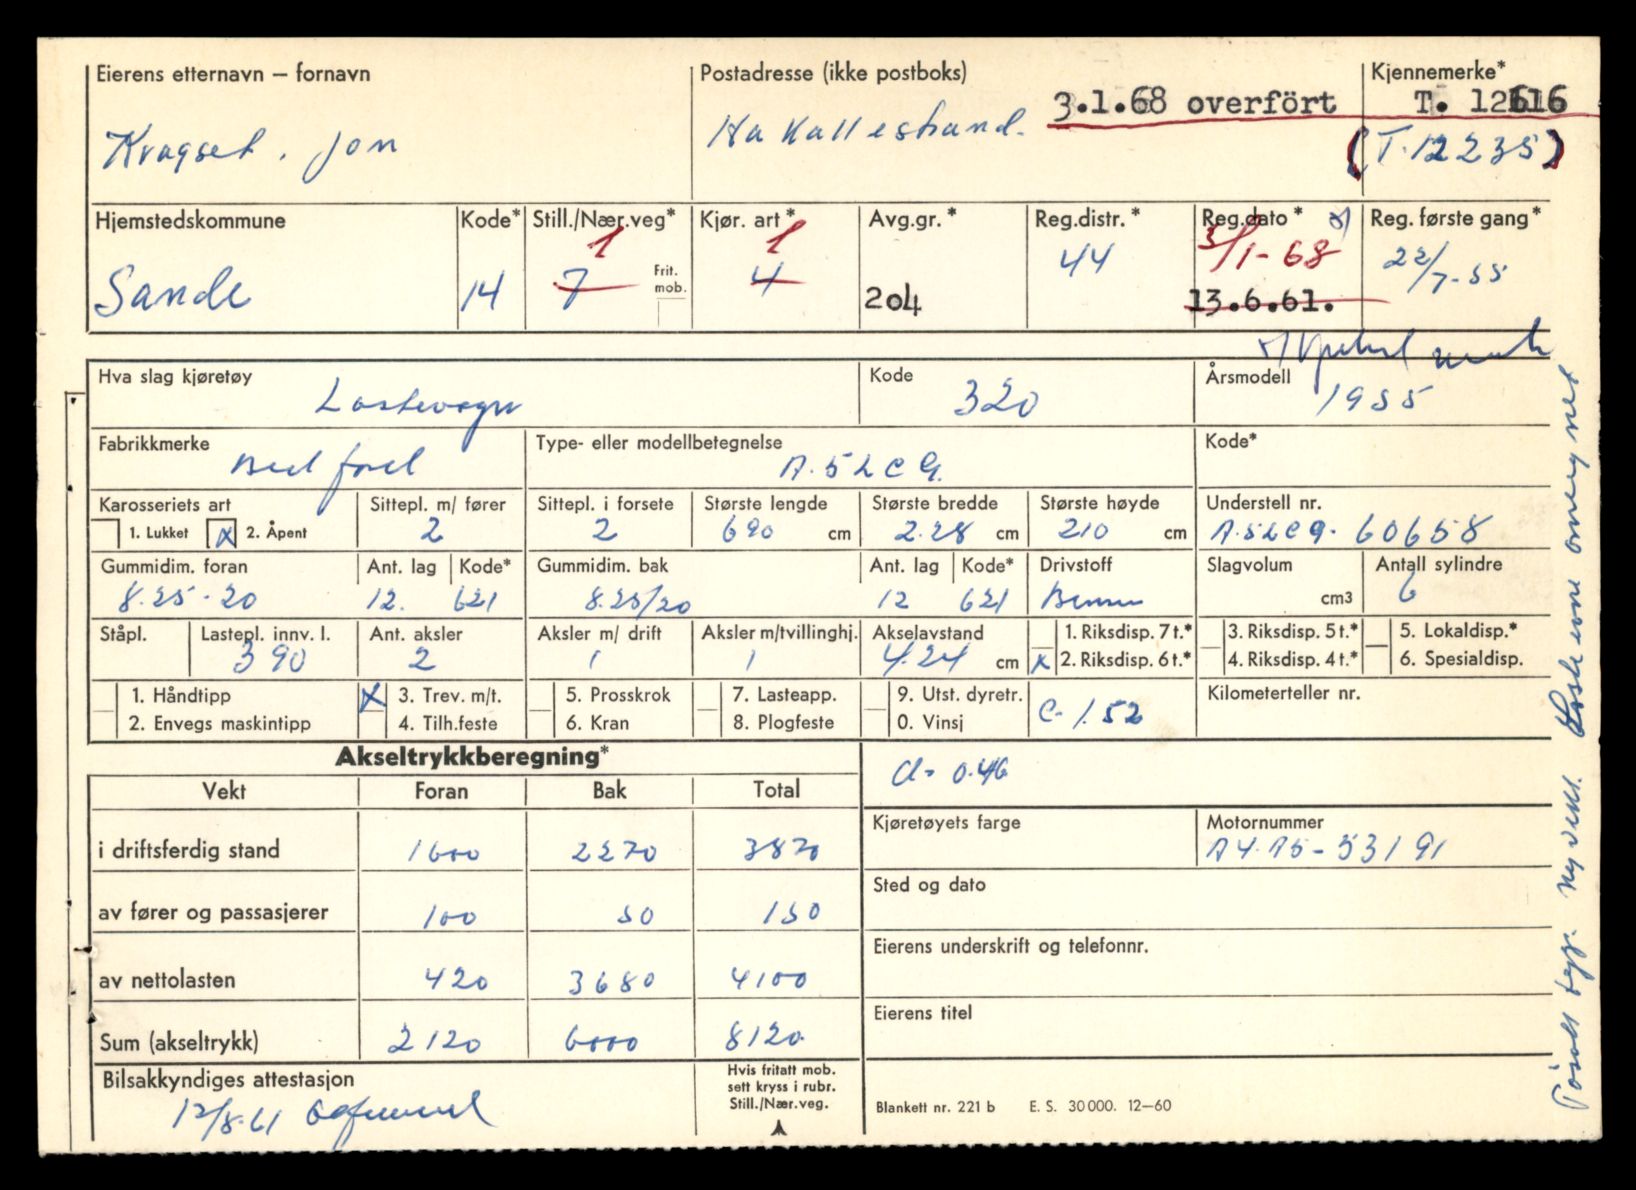 Eierens etternavn – fornavn
Kragset, Jon
Postadresse (ikke postboks)
3.1.68 overfört
Hakallestrand.
Kjennemerke*
T. 12616
(T.12235)
Hjemstedskommune
Sande
Kode*
14
Still./Nær.veg*
1
7
Frit. mob.
Kjør. art*
1
4
Avg.gr.*
204
Reg.distr.*
44
Reg.dato*
3/1-68
13.6.61.
Reg. første gang*
22/7-55
Hva slag kjøretøy
Lastevogn
Kode
320
Årsmodell
1955
Fabrikkmerke
Bedford
Type- eller modellbetegnelse
A.5LCG.
Kode*
Karosseriets art
1. Lukket
x 2. Åpent
Sittepl. m/ fører
2
Sittepl. i forsete
2
Største lengde
690 cm
Største bredde
2.28 cm
Største høyde
210 cm
Understell nr.
A.5LCG. 60658
Gummidim. foran
8.25-20
Ant. lag
12.
Kode*
621
Gummidim. bak
8.25/20
Ant. lag
12
Kode*
621
Drivstoff
Bensin
Slagvolum
cm3
Antall sylindre
6
Ståpl.
Lastepl. innv. l.
390
Ant. aksler
2
Aksler m/ drift
1
Aksler m/tvillinghj.
1
Akselavstand
4.24 cm
1. Riksdisp. 7 t.*
x 2. Riksdisp. 6 t.*
3. Riksdisp. 5 t.*
4. Riksdisp. 4 t.*
5. Lokaldisp.*
6. Spesialdisp.
1. Håndtipp
2. Envegs maskintipp
x 3. Trev. m/t.
4. Tilh.feste
5. Prosskrok
6. Kran
7. Lasteapp.
8. Plogfeste
9. Utst. dyretr.
0. Vinsj
C- 1.52
Kilometerteller nr.
Akseltrykkberegning*
d- 0.46
Vekt Foran Bak Total
i driftsferdig stand 1600 2270 3870
av fører og passasjerer 100 50 150
av nettolasten 420 3680 4100
Sum (akseltrykk) 2120 6000 8120
Kjøretøyets farge
Motornummer
A4.A5-53191
Sted og dato
Eierens underskrift og telefonnr.
Eierens titel
Bilsakkyndiges attestasjon
12/8.61
Hvis fritatt mob.
sett kryss i rubr.
Still./Nær.veg.
Blankett nr. 221 b E. S. 30000. 12–60